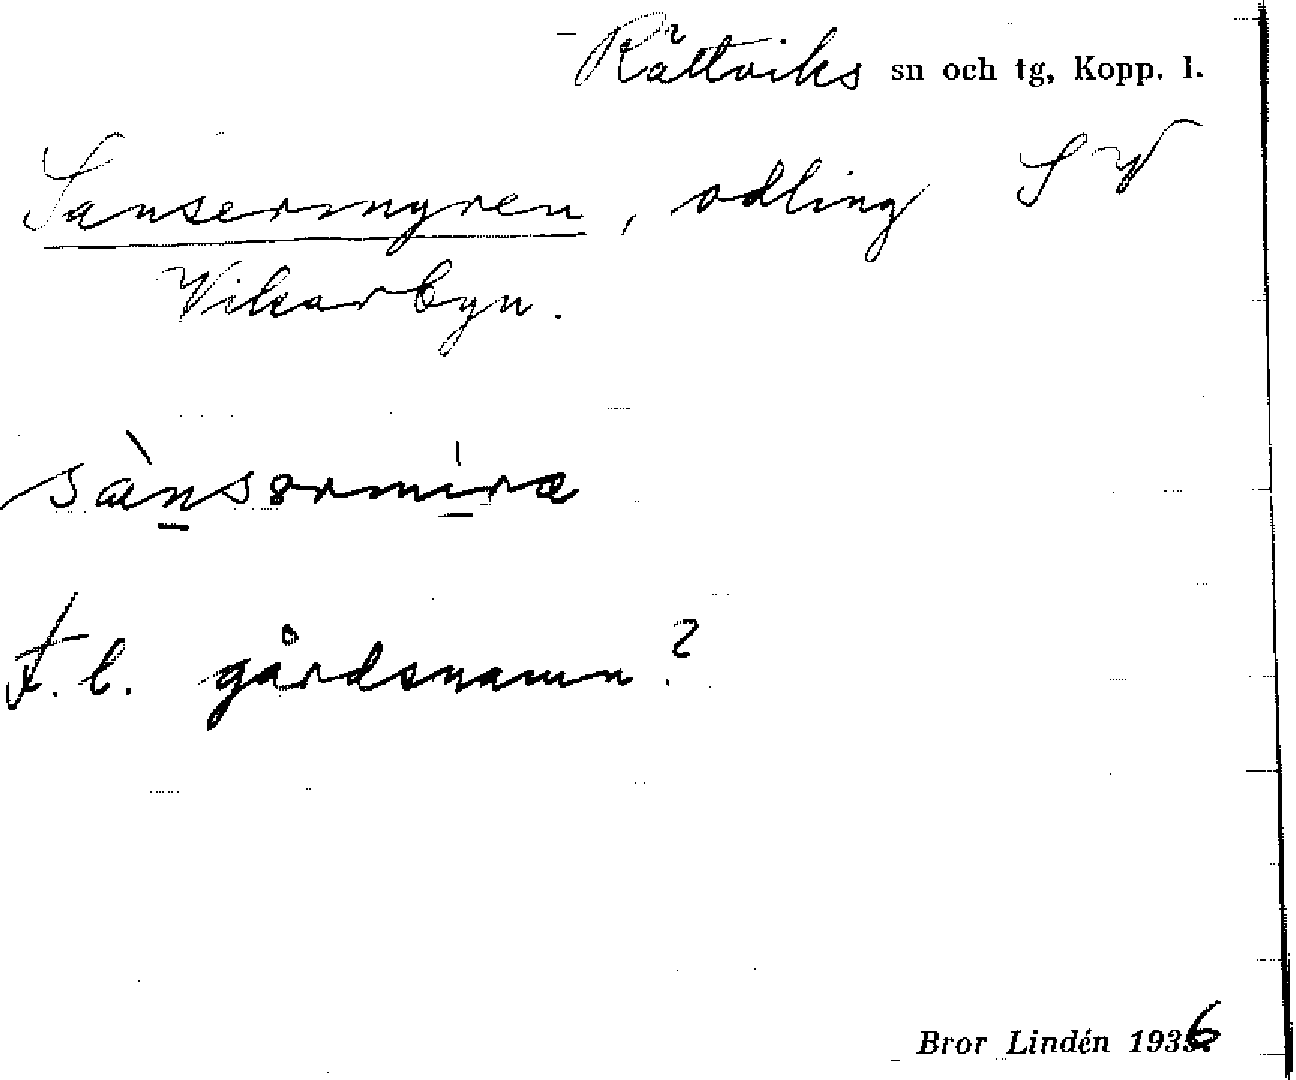 Rättviks sn och tg, Kopp. l.
Sansermyren, odling SV
Vikarbyn.
sànsərmi̱ra
F. b. gårdsnamn?
Bror Lindén 1936